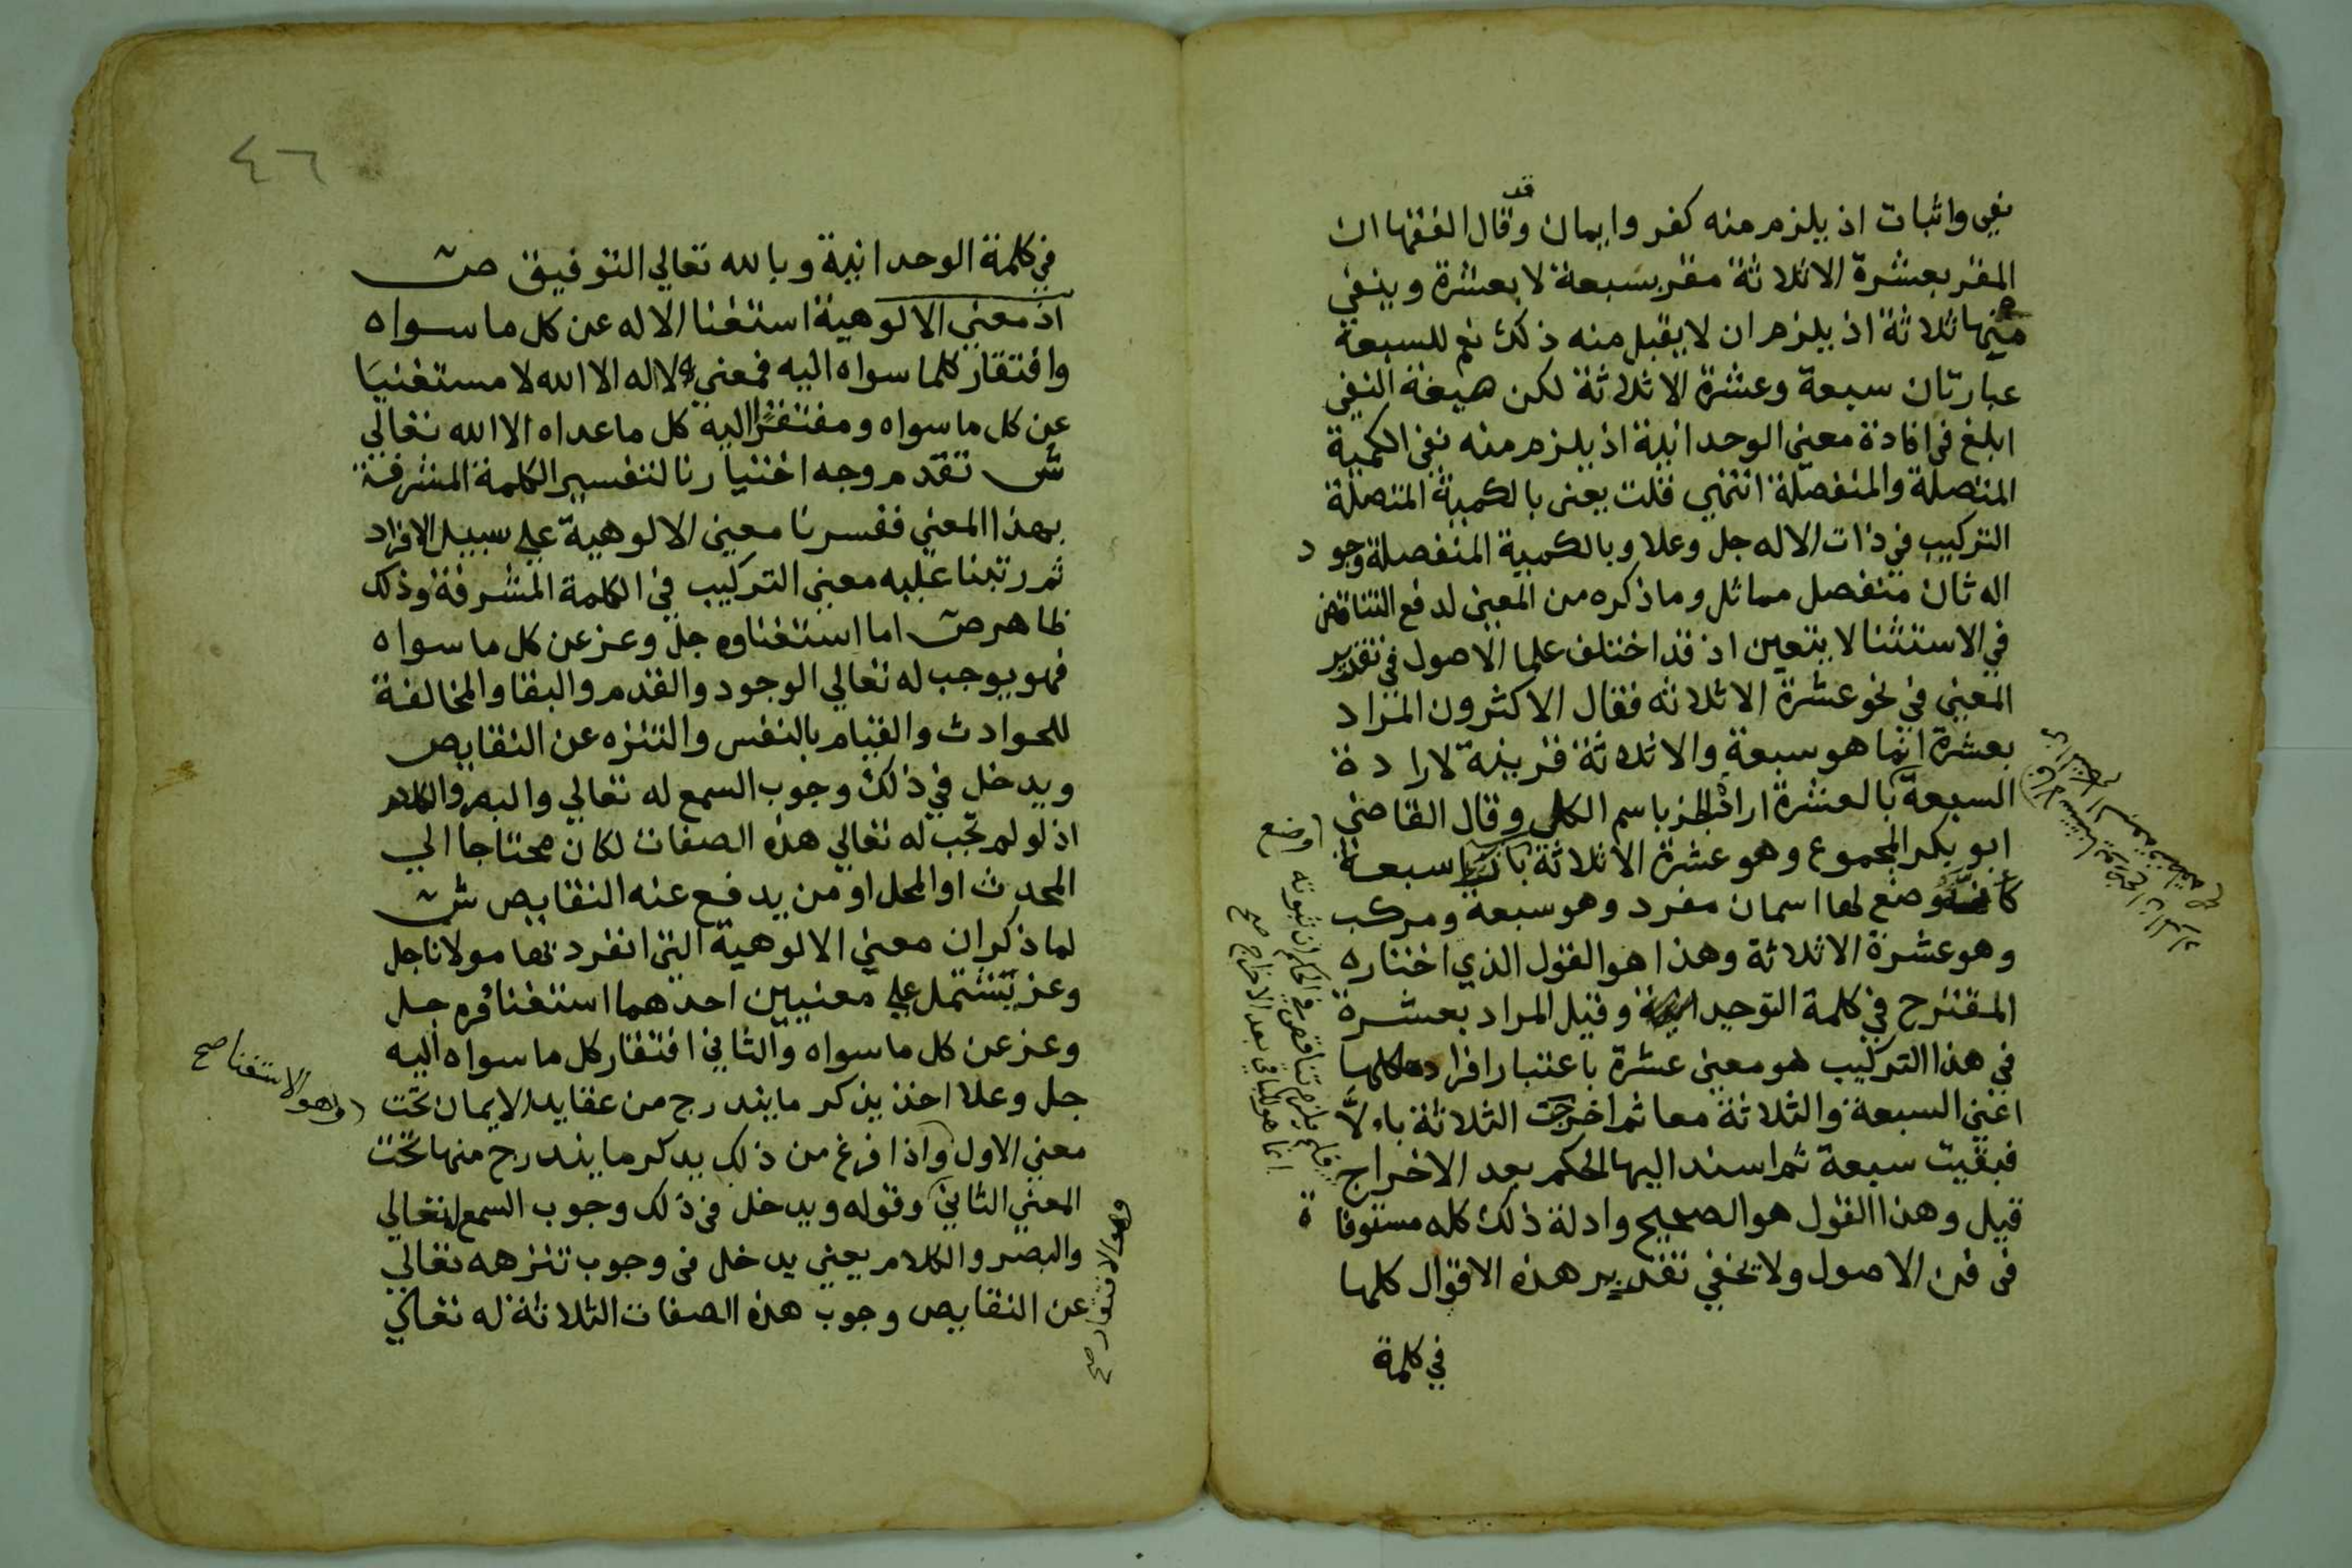 نفي واثبات اذ يلزم منه كفر وايمان وقد قال الفقها ان
المقر بعشرة الاثلاثة مقر بسبعة لا بعشرة وينفي
منها ثلاثة اذ يلزم ان لا يقبل منه ذلك نعم للسبعة
عبارتان سبعة وعشرة الاثلاثة لكن صيغة النفي
ابلغ في افادة معني الوحدانية اذ يلزم منه نفي الكمية
المتصلة والمنفصلة انتهي قلت يعني بالكمية المتصلة
التركيب في ذات الاله جل وعلا وبالكمية المنفصلة وجود
اله ثان منفصل مماثل وما ذكره من المعني لدفع التناقض
في الاستثنا لا يتعين اذ قد اختلف علما الاصول في تقدير
المعني في نحو عشرة الاثلاثه فقال الاكثرون المراد
بعشرة انما هو سبعة والاثلاثة قرينة لارادة
السبعة بالعشرة ارادة الجز باسم الكل وقال القاضي
ابو بكر المجموع وهو عشرة الاثلاثة بازا سبعة
كانه وضع لها اسمان مفرد وهو سبعة ومركب
وهو عشرة الاثلاثة وهذا هو القول الذي اختاره
المقترح في كلمة التوحيد وقيل المراد بعشرة
في هذا التركيب هو معني عشرة باعتبار افراده كلها
اعني السبعة والثلاثة معا ثم اخرجت الثلاثة بالا
فبقيت سبعة ثم اسند اليها الحكم بعد الاخراج
قيل وهذا القول هو الصحيح وادلة ذلك كله مستوفاة
في فن الاصول ولا يخفي تقدير هذه الاقوال كلها
في كلمة
فلم يلزم تناقض في الحكم ان ثبوته
انما هو للباقي بعد الاخراج صح
٤٦
في كلمة الوحدانية وبالله تعالي التوفيق ص
اذ معني الالوهية استغنا الاله عن كل ما سواه
وافتقار كلما سواه اليه فمعني لااله الا الله لا مستغنيا
عن كل ما سواه ومفتقرا اليه كل ما عداه الا الله تعالي
ش تقدم وجه اختيارنا لتفسير الكلمة المشرفة
بهذا المعني ففسرنا معني الالوهية علي سبيل الافراد
ثم رتبنا عليه معني التركيب في الكلمة المشرفة وذلك
ظاهر ص اما استغناوه جل وعز عن كل ما سواه
فهو يوجب له تعالي الوجود والقدم والبقا والمخالفة
للحوادث والقيام بالنفس والتنزه عن النقايص
ويدخل في ذلك وجوب السمع له تعالي والبصر والكلام
اذ لو لم تجب له تعالي هذه الصفات لكان محتاجا الي
المحدث او المحل او من يدفع عنه النقايص ش
لما ذكر ان معني الالوهية التي انفرد بها مولانا جل
وعز يشتمل علي معنيين احدهما استغناؤه جل
وعز عن كل ما سواه والثاني افتقار كل ما سواه اليه
جل وعلا اخذ يذكر ما يندرج من عقايد الايمان تحت
معني الاول واذا فرغ من ذلك يدكر ما يندرج منها تحت
المعني الثاني وقوله ويدخل في ذلك وجوب السمع له تعالي
والبصر والكلام يعني يدخل في وجوب تنزهه تعالي
عن النقايص وجوب هذه الصفات الثلاثة له تعالي
وهو الاستغنا صح
وهو الافتقار صح